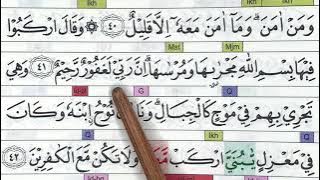 Ikh Ikh
وَمَنْ اٰمَنَ ۗ وَمَآ اٰمَنَ مَعَهٗٓ اِلَّا قَلِيْلٌ ۝٤٠ ۞ وَقَالَ ارْكَبُوْا
Mst Mjm
فِيْهَا بِسْمِ اللّٰهِ مَجْرٰ۪ىهَا وَمُرْسٰىهَا ۗ اِنَّ رَبِّيْ لَغَفُوْرٌ رَّحِيْمٌ ۝٤١ وَهِيَ
G Q
تَجْرِيْ بِهِمْ فِيْ مَوْجٍ كَالْجِبَالِۗ وَنَادٰى نُوْحُ ࣙابْنَهٗ وَكَانَ
Q Ikh Q
فِيْ مَعْزِلٍ يّٰبُنَيَّ ارْكَبْ مَّعَنَا وَلَا تَكُنْ مَّعَ الْكٰفِرِيْنَ ۝٤٢